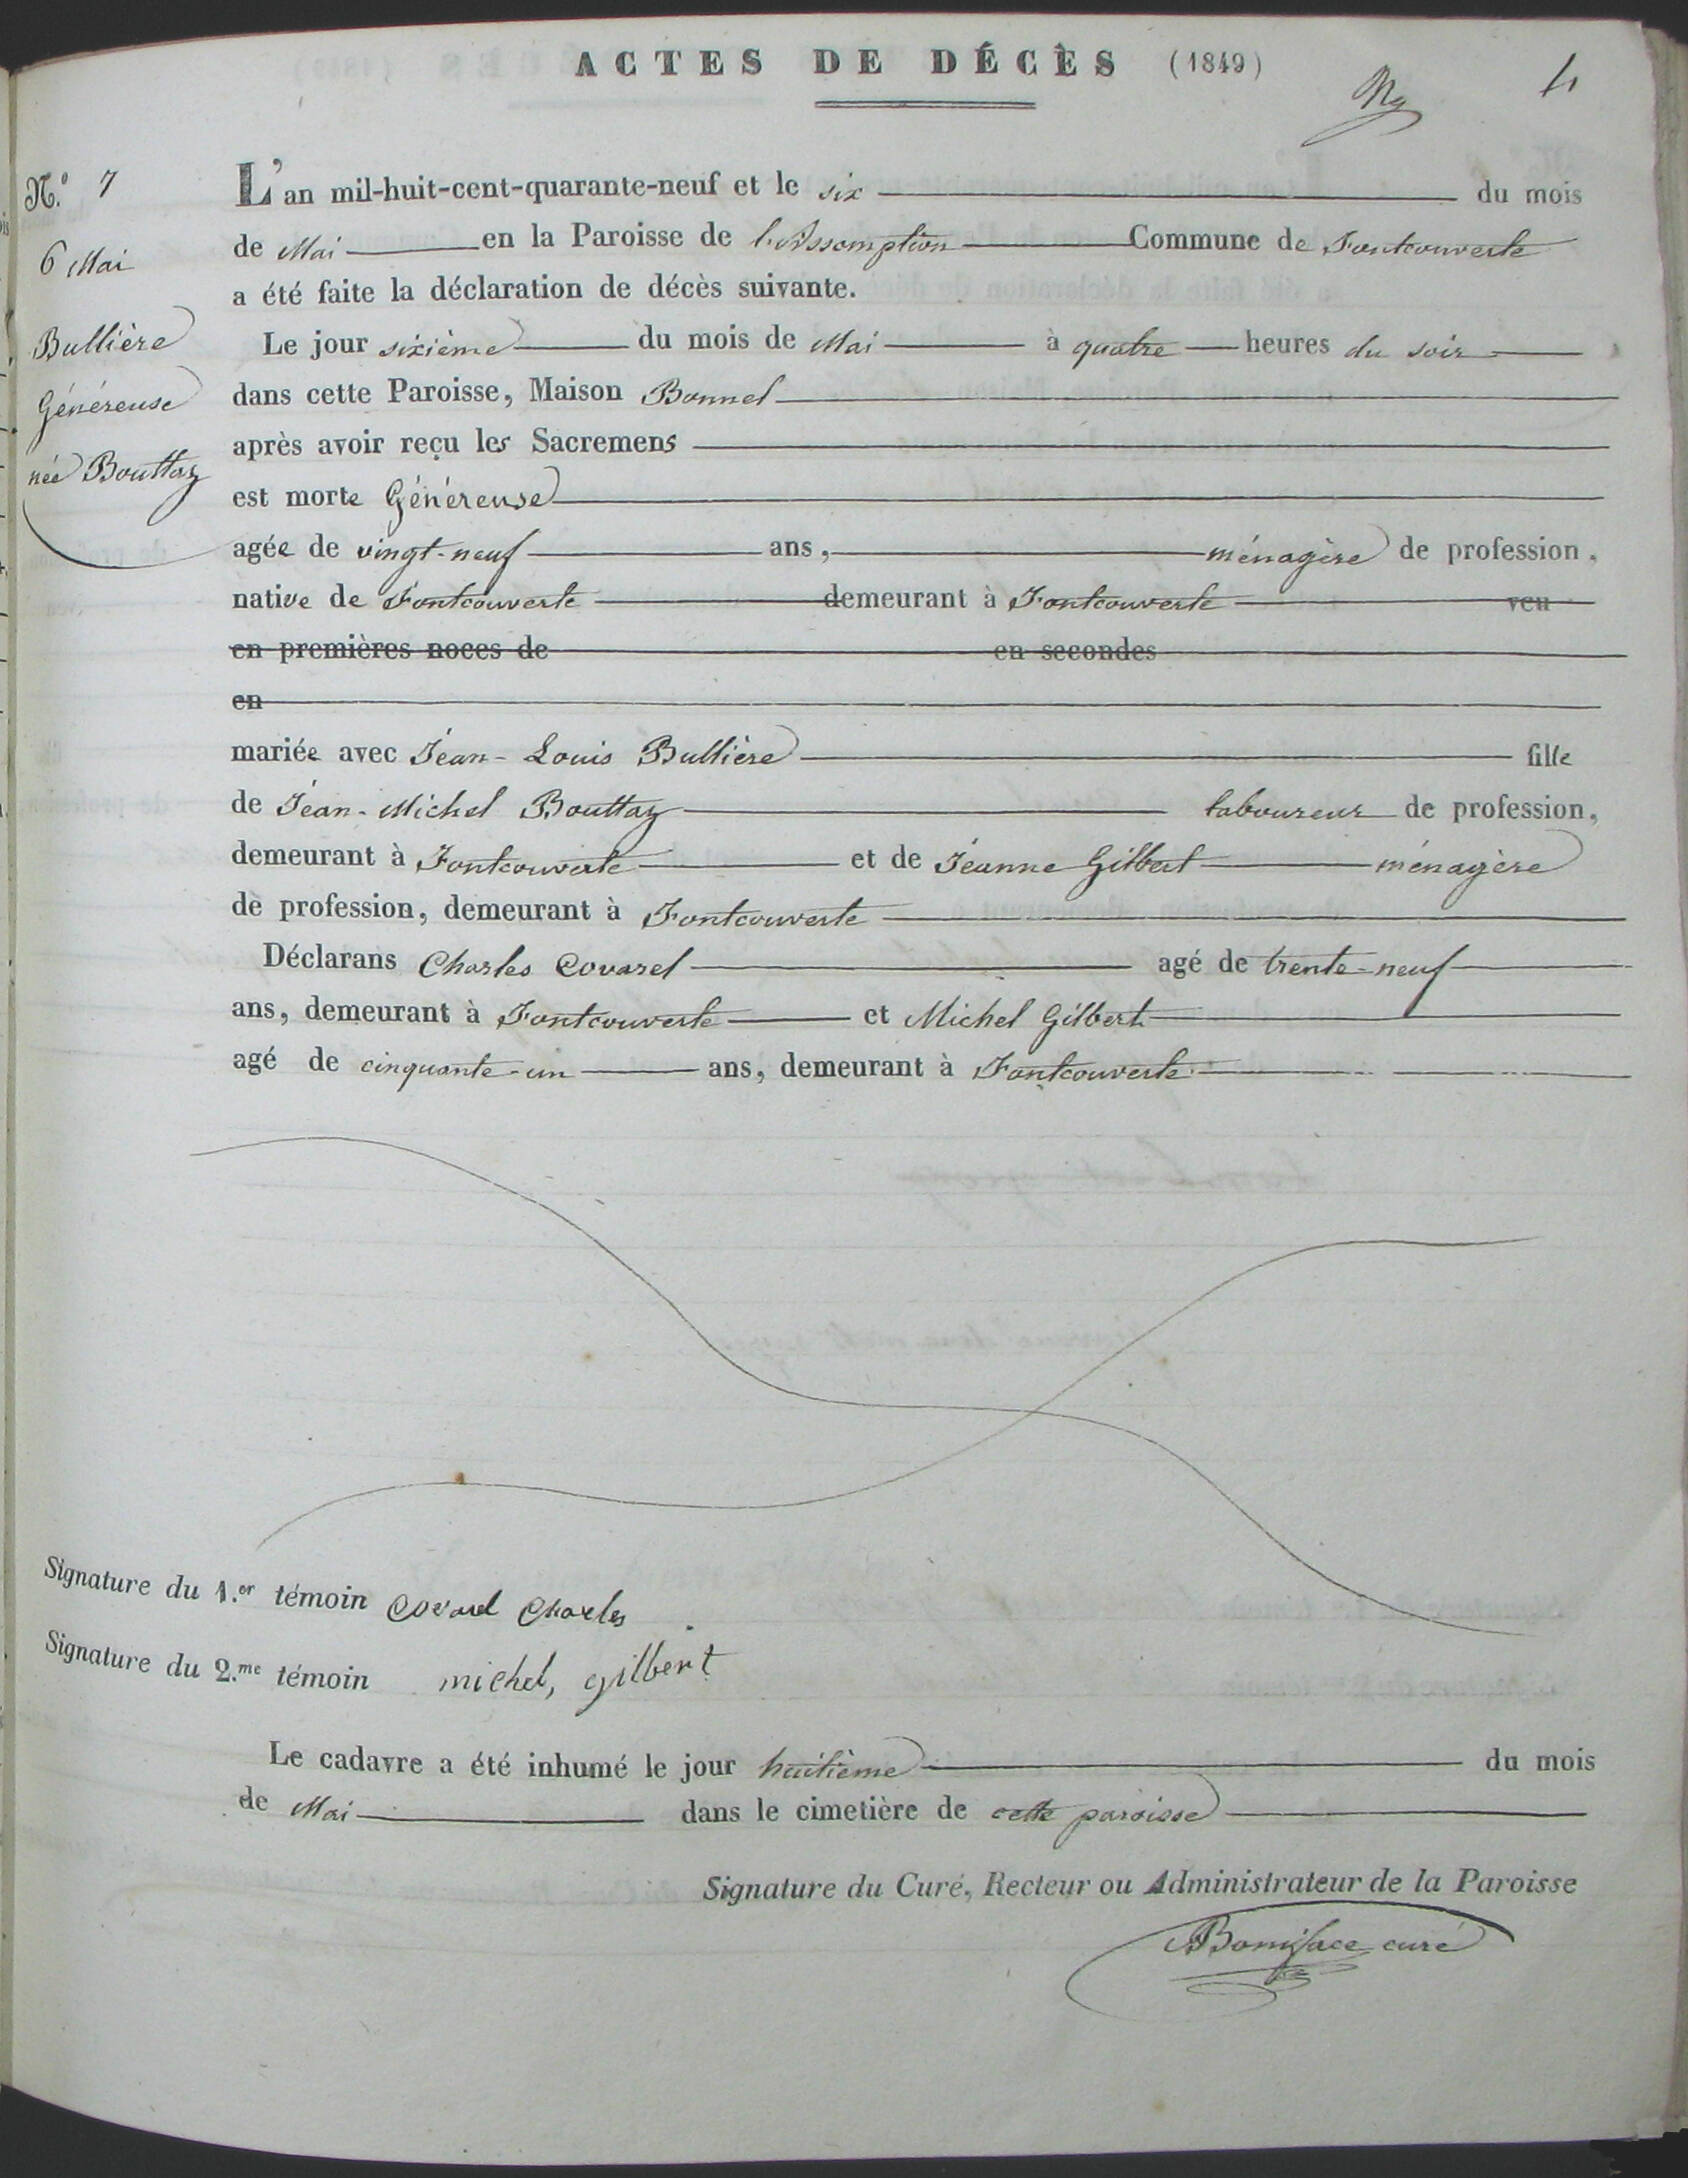 ACTES DE DÉCÈS (1849)
4
N.º 7
6 Mai
Bullière
Généreuse
née Bouttaz
L'an mil-huit-cent-quarante-neuf et le six du mois
de Mai en la Paroisse de l'Assomption Commune de Fontcouverte
a été faite la déclaration de décès suivante.
Le jour sixième du mois de Mai à quatre heures du soir
dans cette Paroisse, Maison Bonnel
après avoir reçu les Sacremens
est morte Généreuse
agée de vingt-neuf ans, ménagère de profession.
native de Fontcouverte demeurant à Fontcouverte veu
en premières noces de en secondes
en
mariée avec Jean-Louis Bullière fille
de Jean-Michel Bouttaz laboureur de profession,
demeurant à Fontcouverte et de Jeanne Gilbert ménagère
de profession, demeurant à Fontcouverte
Déclarans Charles Covarel agé de trente-neuf
ans, demeurant à Fontcouverte et Michel Gilbert
agé de cinquante-un ans, demeurant à Fontcouverte
Signature du 1.er témoin Covarel Charles
Signature du 2.me témoin michel, gilbert
Le cadavre a été inhumé le jour huitième du mois
de Mai dans le cimetière de cette paroisse
Signature du Curé, Recteur ou Administrateur de la Paroisse
Boniface curé